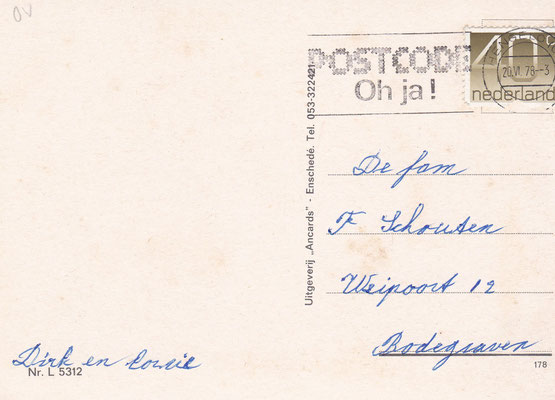 OV
POSTCODE
Oh ja!
40c
nederland
20.VI.78-3
Uitgeverij „Ancards" - Enschedé. Tel. 053-322421
De fam
F Schouten
Weipoort 12
Bodegraven
Dirk en
Nr. L 5312
178